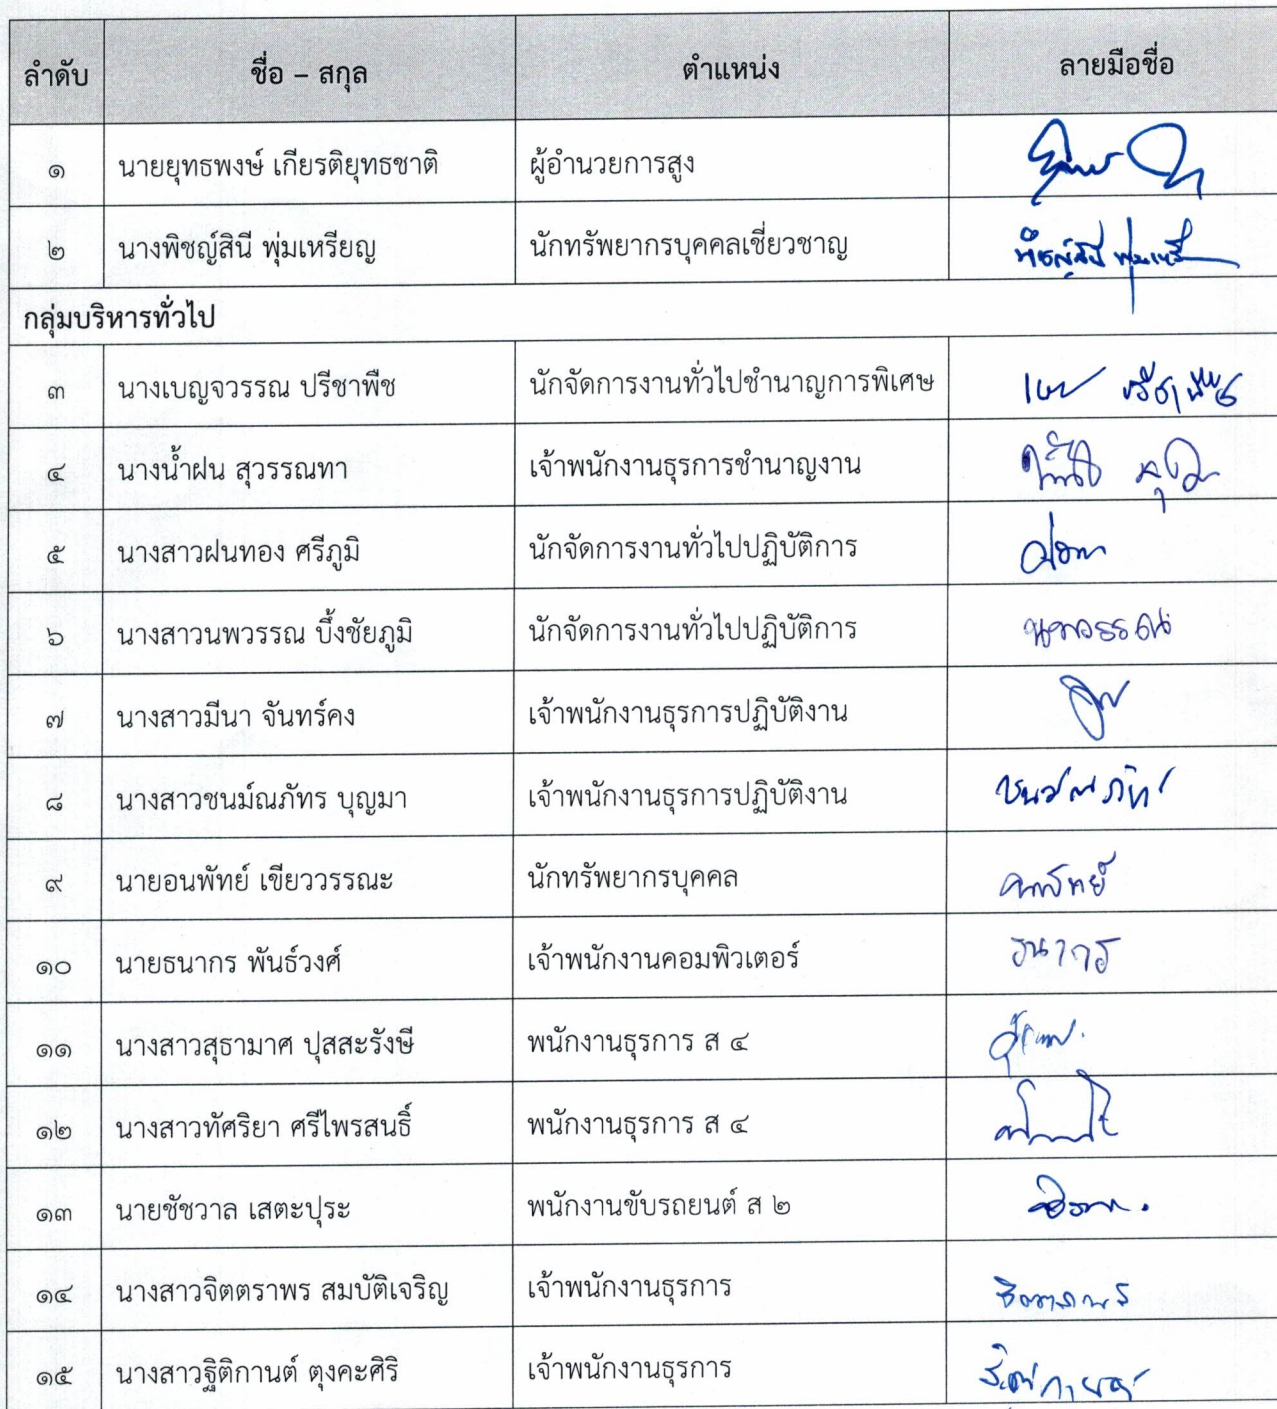 ลำดับ ชื่อ – สกุล ตำแหน่ง ลายมือชื่อ
๑ นายยุทธพงษ์ เกียรติยุทธชาติ ผู้อำนวยการสูง
๒ นางพิชญ์สินี พุ่มเหรียญ นักทรัพยากรบุคคลเชี่ยวชาญ พิชญ์สินี
กลุ่มบริหารทั่วไป
๓ นางเบญจวรรณ ปรีชาพืช นักจัดการงานทั่วไปชำนาญการพิเศษ
๔ นางน้ำฝน สุวรรณทา เจ้าพนักงานธุรการชำนาญงาน
๕ นางสาวฝนทอง ศรีภูมิ นักจัดการงานทั่วไปปฏิบัติการ
๖ นางสาวนพวรรณ บึ้งชัยภูมิ นักจัดการงานทั่วไปปฏิบัติการ นพวรรณ
๗ นางสาวมีนา จันทร์คง เจ้าพนักงานธุรการปฏิบัติงาน
๘ นางสาวชนม์ณภัทร บุญมา เจ้าพนักงานธุรการปฏิบัติงาน
๙ นายอนพัทย์ เขียววรรณะ นักทรัพยากรบุคคล
๑๐ นายธนากร พันธ์วงศ์ เจ้าพนักงานคอมพิวเตอร์ ธนากร
๑๑ นางสาวสุธามาศ ปุสสะรังษี พนักงานธุรการ ส ๔
๑๒ นางสาวทัศริยา ศรีไพรสนธิ์ พนักงานธุรการ ส ๔
๑๓ นายชัชวาล เสตะปุระ พนักงานขับรถยนต์ ส ๒
๑๔ นางสาวจิตตราพร สมบัติเจริญ เจ้าพนักงานธุรการ
๑๕ นางสาวฐิติกานต์ ตุงคะศิริ เจ้าพนักงานธุรการ